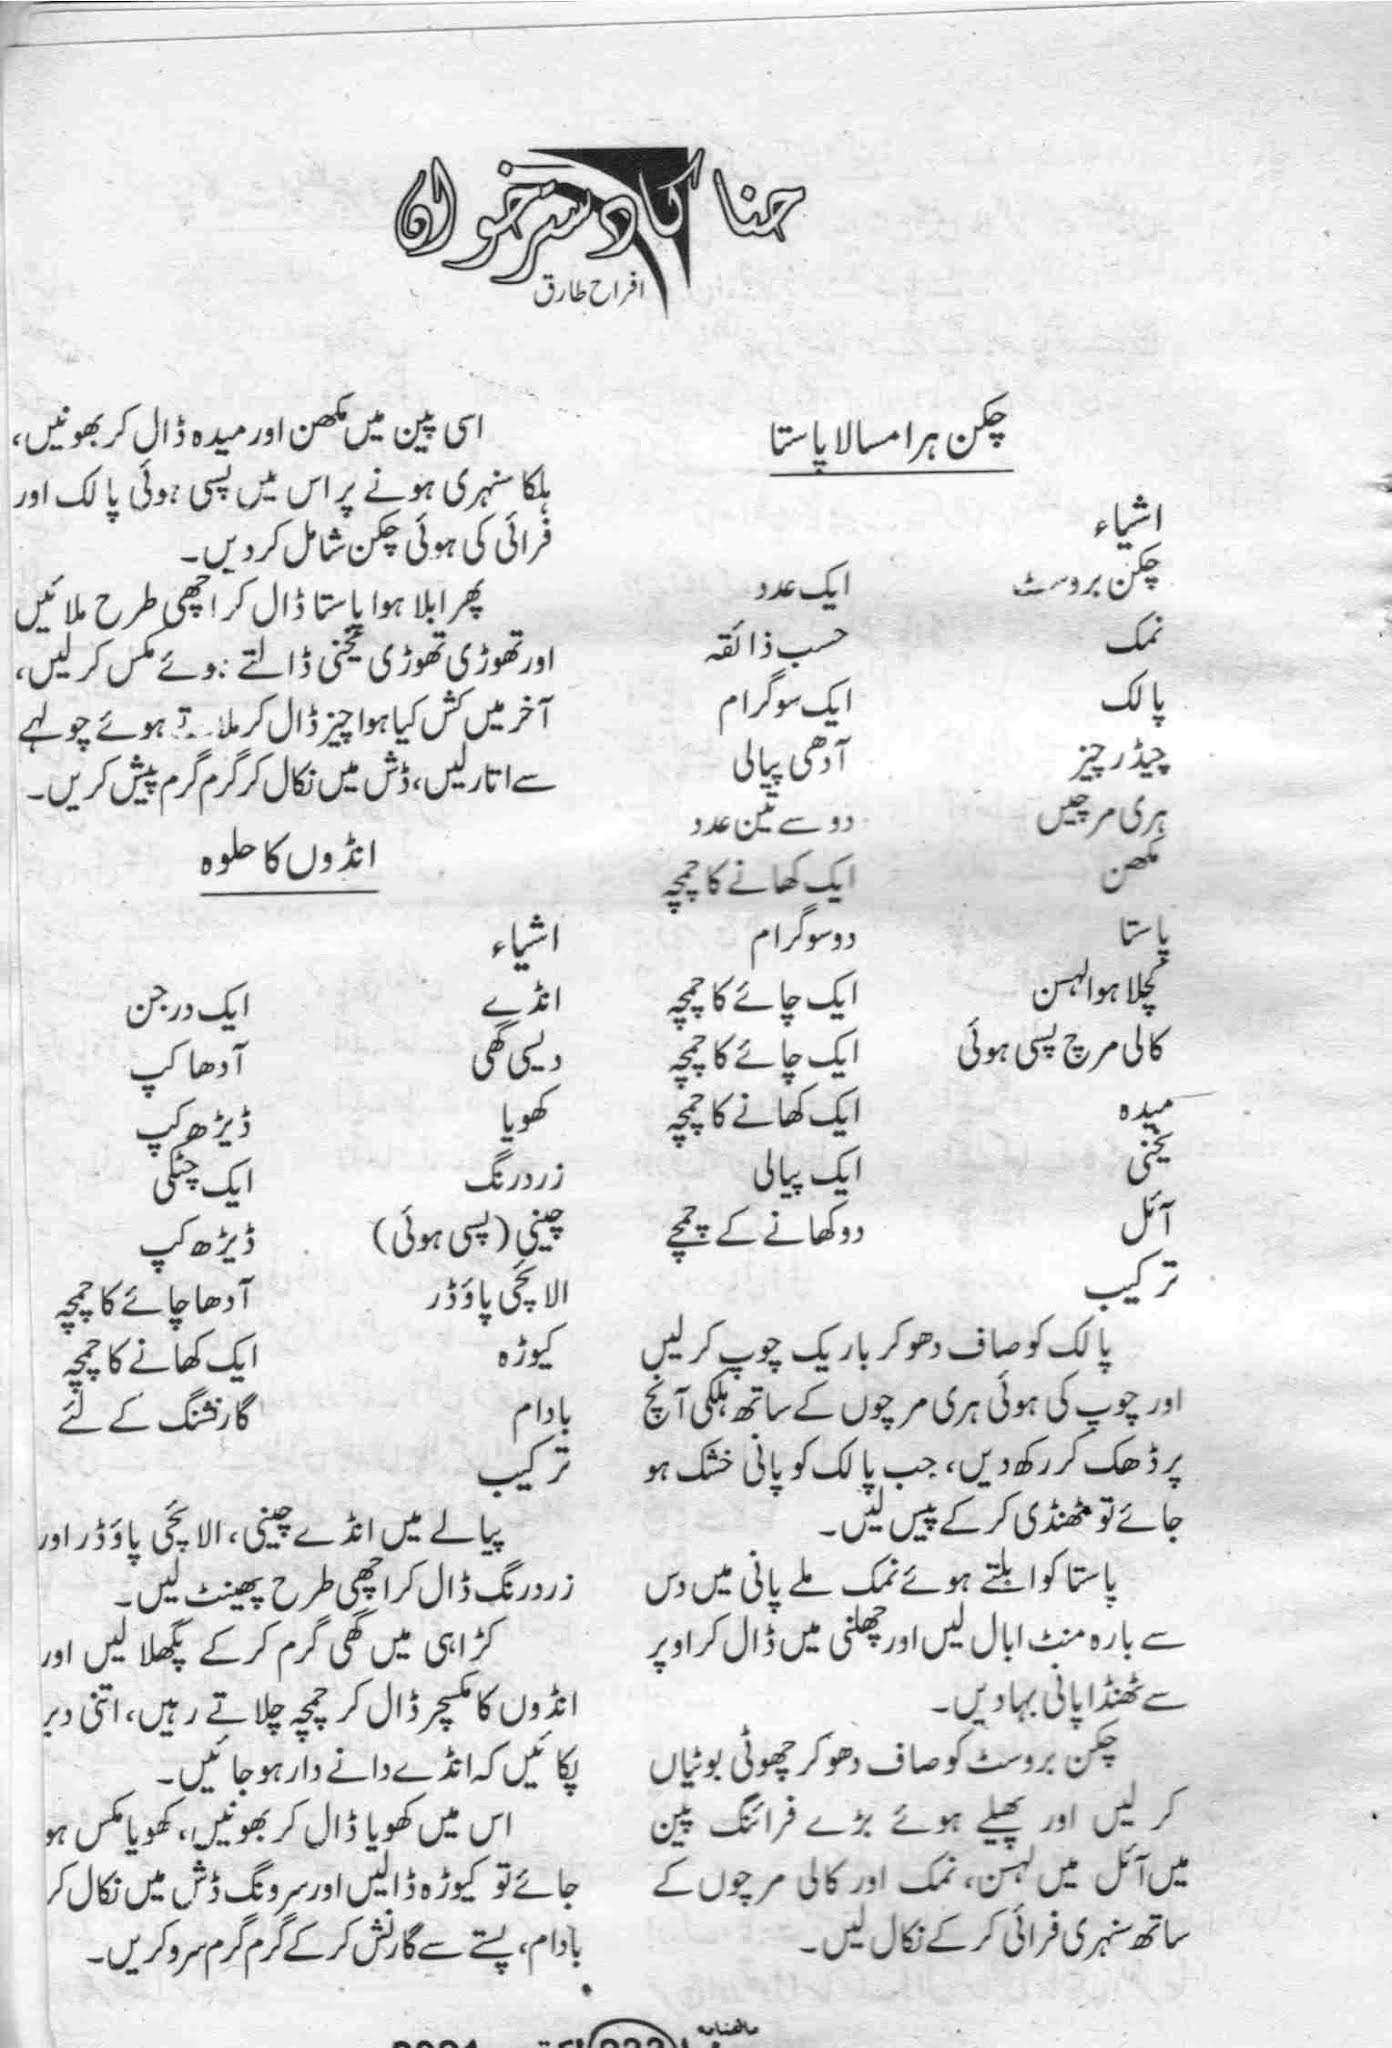 حنا کا دسترخوان
افراح طارق
چکن ہرا مسالا پاستا
اشیاء
چکن بروسٹ ایک عدد
نمک حسب ذائقہ
پالک ایک سو گرام
چیڈر چیز آدھی پیالی
ہری مرچیں دو سے تین عدد
مکھن ایک کھانے کا چمچہ
پاستا دو سو گرام
کچلا ہوا لہسن ایک چائے کا چمچہ
کالی مرچ پسی ہوئی ایک چائے کا چمچہ
میدہ ایک کھانے کا چمچہ
یخنی ایک پیالی
آئل دو کھانے کے چمچے
ترکیب
پالک کو صاف دھو کر باریک چوپ کر لیں
اور چوپ کی ہوئی ہری مرچوں کے ساتھ ہلکی آنچ
پر ڈھک کر رکھ دیں، جب پالک کو پانی خشک ہو
جائے تو ٹھنڈی کر کے پیس لیں۔
پاستا کو ابلتے ہوئے نمک ملے پانی میں دس
سے بارہ منٹ ابال لیں اور چھلنی میں ڈال کر اوپر
سے ٹھنڈا پانی بہا دیں۔
چکن بروسٹ کو صاف دھو کر چھوٹی بوٹیاں
کر لیں اور پھیلے ہوئے بڑے فرائنگ پین
میں آئل میں لہسن، نمک اور کالی مرچوں کے
ساتھ سنہری فرائی کر کے نکال لیں۔
اسی پین میں مکھن اور میدہ ڈال کر بھونیں،
ہلکا سنہری ہونے پر اس میں پسی ہوئی پالک اور
فرائی کی ہوئی چکن شامل کر دیں۔
پھر ابلا ہوا پاستا ڈال کر اچھی طرح ملائیں
اور تھوڑی تھوڑی یخنی ڈالتے ہوئے مکس کر لیں،
آخر میں کش کیا ہوا چیز ڈال کر ملاتے ہوئے چولہے
سے اتار لیں، ڈش میں نکال کر گرم گرم پیش کریں۔
انڈوں کا حلوہ
اشیاء
انڈے ایک درجن
دیسی گھی آدھا کپ
کھویا ڈیڑھ کپ
زرد رنگ ایک چٹکی
چینی (پسی ہوئی) ڈیڑھ کپ
الائچی پاؤڈر آدھا چائے کا چمچہ
کیوڑہ ایک کھانے کا چمچہ
بادام گارنشنگ کے لئے
ترکیب
پیالے میں انڈے چینی، الائچی پاؤڈر اور
زرد رنگ ڈال کر اچھی طرح پھینٹ لیں۔
کڑاہی میں گھی گرم کر کے پگھلا لیں اور
انڈوں کا مکسچر ڈال کر چمچہ چلاتے رہیں، اتنی دیر
پکائیں کہ انڈے دانے دار ہو جائیں۔
اس میں کھویا ڈال کر بھونیں، کھویا مکس ہو
جائے تو کیوڑہ ڈالیں اور سرونگ ڈش میں نکال کر
بادام، پستے سے گارنش کر کے گرم گرم سرو کریں۔
ماہنامہ